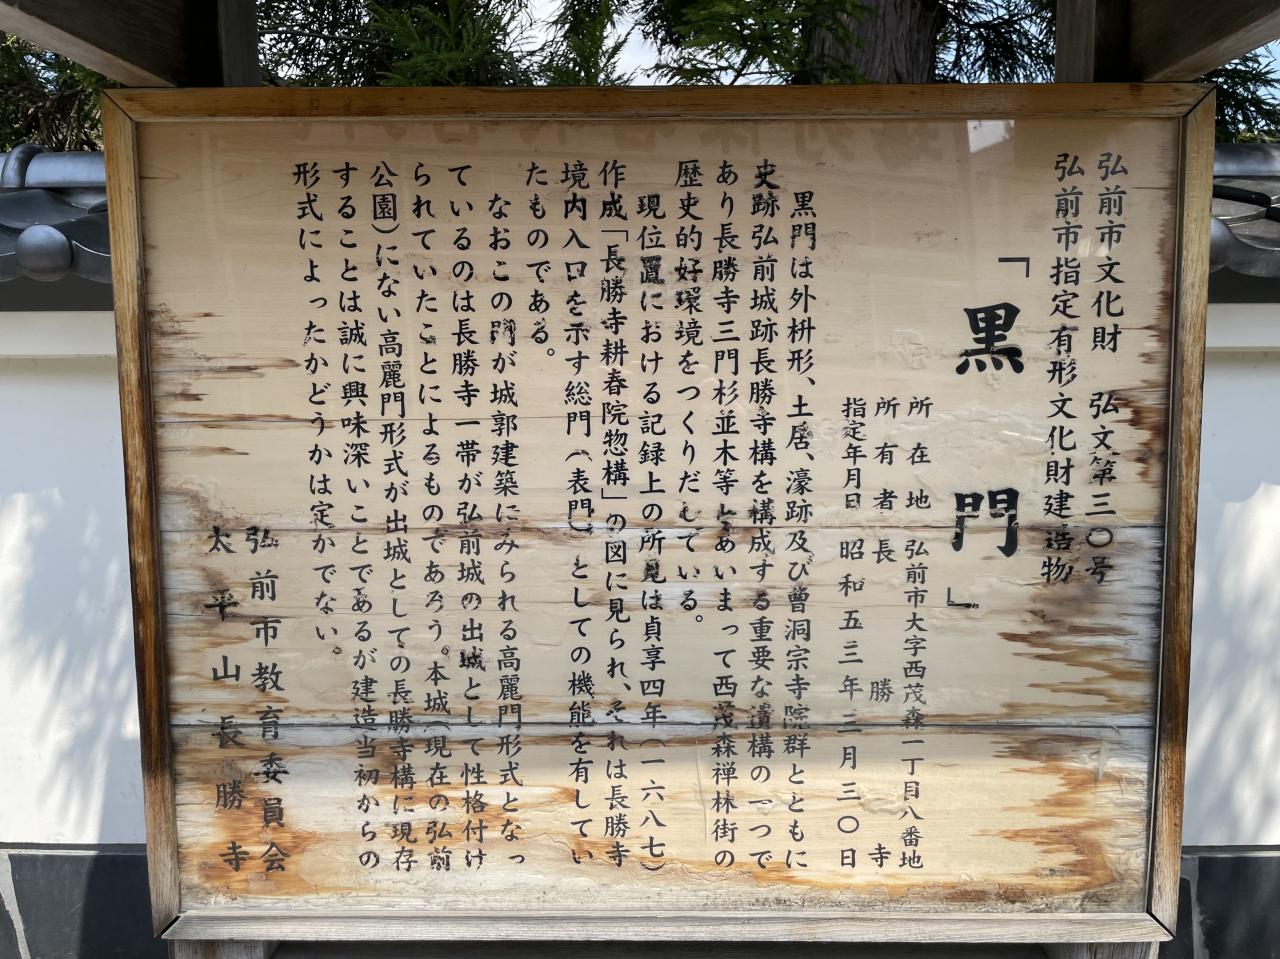 弘前市文化財 弘文第三〇号
弘前市指定有形文化財建造物
「黒門」
所在地 弘前市大字西茂森一丁目八番地
所有者 長勝寺
指定年月日 昭和五三年三月三〇日
黒門は外枡形、土居、濠跡及び曹洞宗寺院群とともに
史跡弘前城跡長勝寺構を構成する重要な遺構の一つで
あり長勝寺三門杉並木等とあいまって西茂森禅林街の
歴史的好環境をつくりだしている。
現位置における記録上の所見は貞享四年(一六八七)
作成「長勝寺耕春院惣構」の図に見られ、それは長勝寺
境内入口を示す総門(表門)としての機能を有してい
たものである。
なおこの門が城郭建築にみられる高麗門形式となっ
ているのは長勝寺一帯が弘前城の出城として性格付け
られていたことによるものであろう。本城(現在の弘前
公園)にない高麗門形式が出城としての長勝寺構に現存
することは誠に興味深いことであるが建造当初からの
形式によったかどうかは定かでない。
弘前市教育委員会
太平山長勝寺